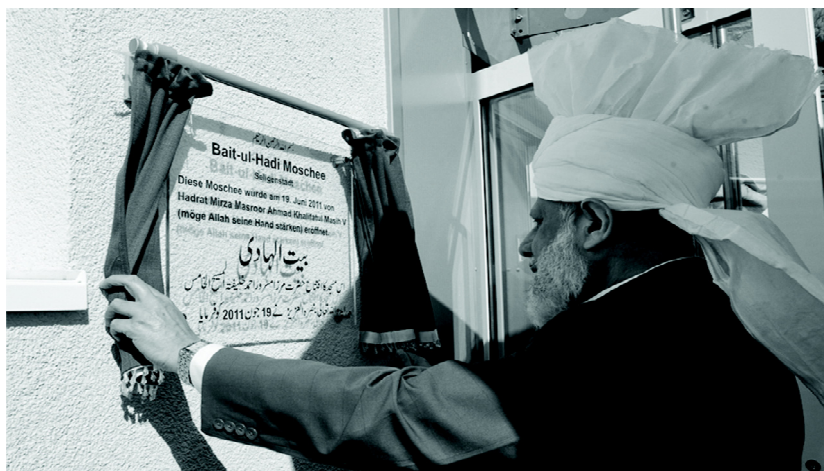 بسم اللہ الرحمٰن الرحیم
Bait-ul-Hadi Moschee
Seligenstadt
Diese Moschee wurde am 19. Juni 2011 von
Hadrat Mirza Masroor Ahmad Khalifatul Masih V
(möge Allah seine Hand stärken) eröffnet.
بیت الہادی
اس مسجد کا افتتاح حضرت مرزا مسرور احمد خلیفۃ المسیح الخامس
نے 19 جون 2011 کو فرمایا